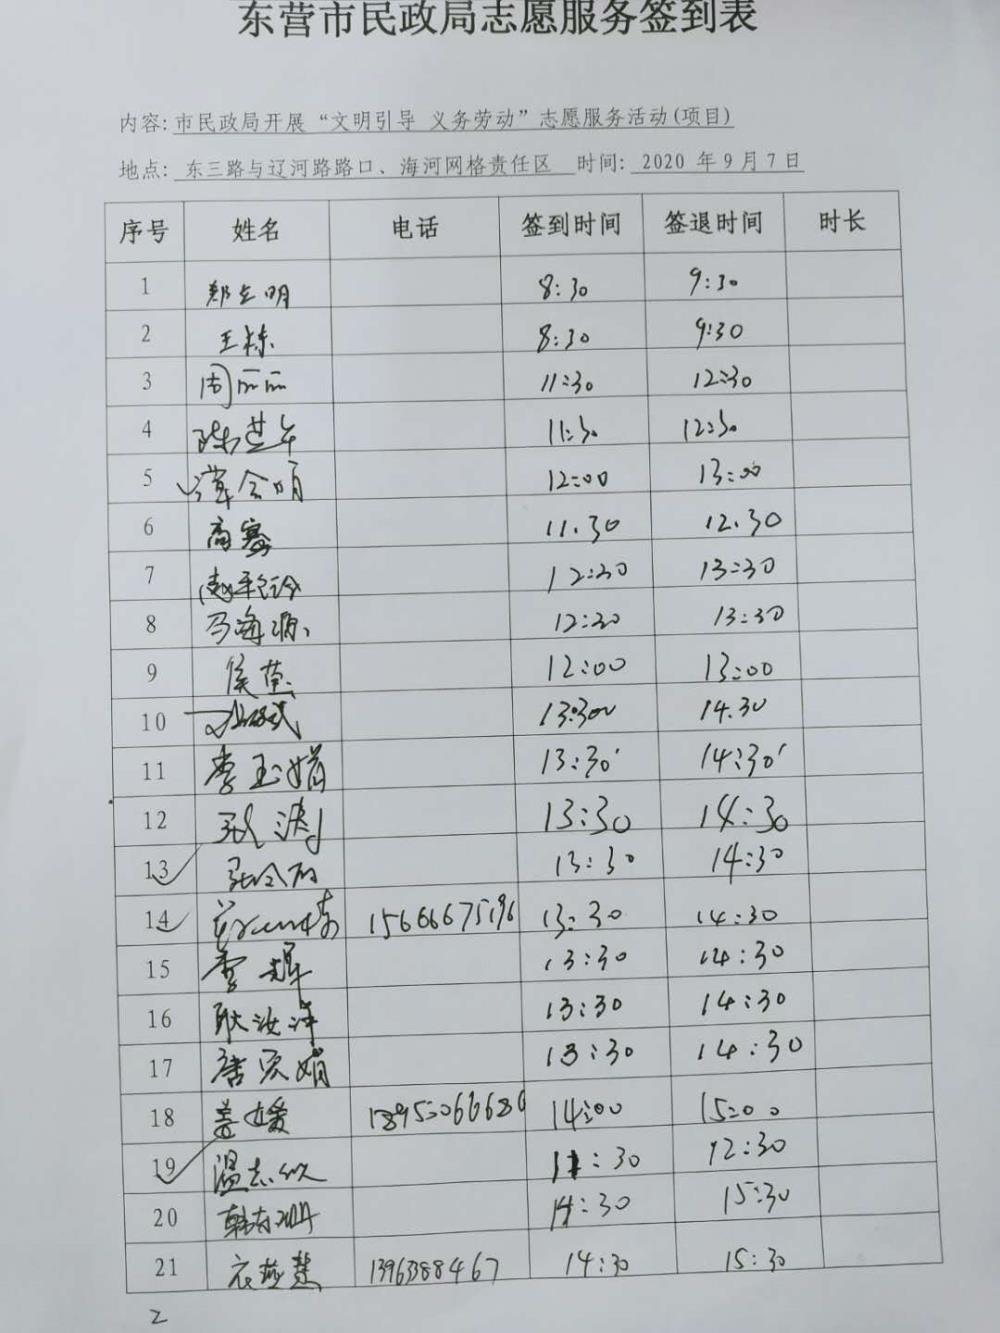 东营市民政局志愿服务签到表
内容: 市民政局开展“文明引导 义务劳动”志愿服务活动(项目)
地点: 东三路与辽河路路口、海河网格责任区 时间: 2020 年9月7日
序号 姓名 电话 签到时间 签退时间 时长
1 郑立明 8:30 9:30
2 王栋 8:30 9:30
3 周丽丽 11:30 12:30
4 11:30 12:30
5 12:00 13:00
6 高赛 11.30 12.30
7 赵平玲 12:30 13:30
8 马海源 12:30 13:30
9 侯莹 12:00 13:00
10 13:30 14.30
11 李玉娟 13:30 14:30
12 张涛 13:30 14:30
13 13:30 14:30
14 15666675196 13:30 14:30
15 李辉 13:30 14:30
16 耿汝洋 13:30 14:30
17 唐宗娟 13:30 14:30
18 姜媛 14:00 15:00
19 温志欣 11:30 12:30
20 14:30 15:30
21 衣燕慧 13963888467 14:30 15:30
2